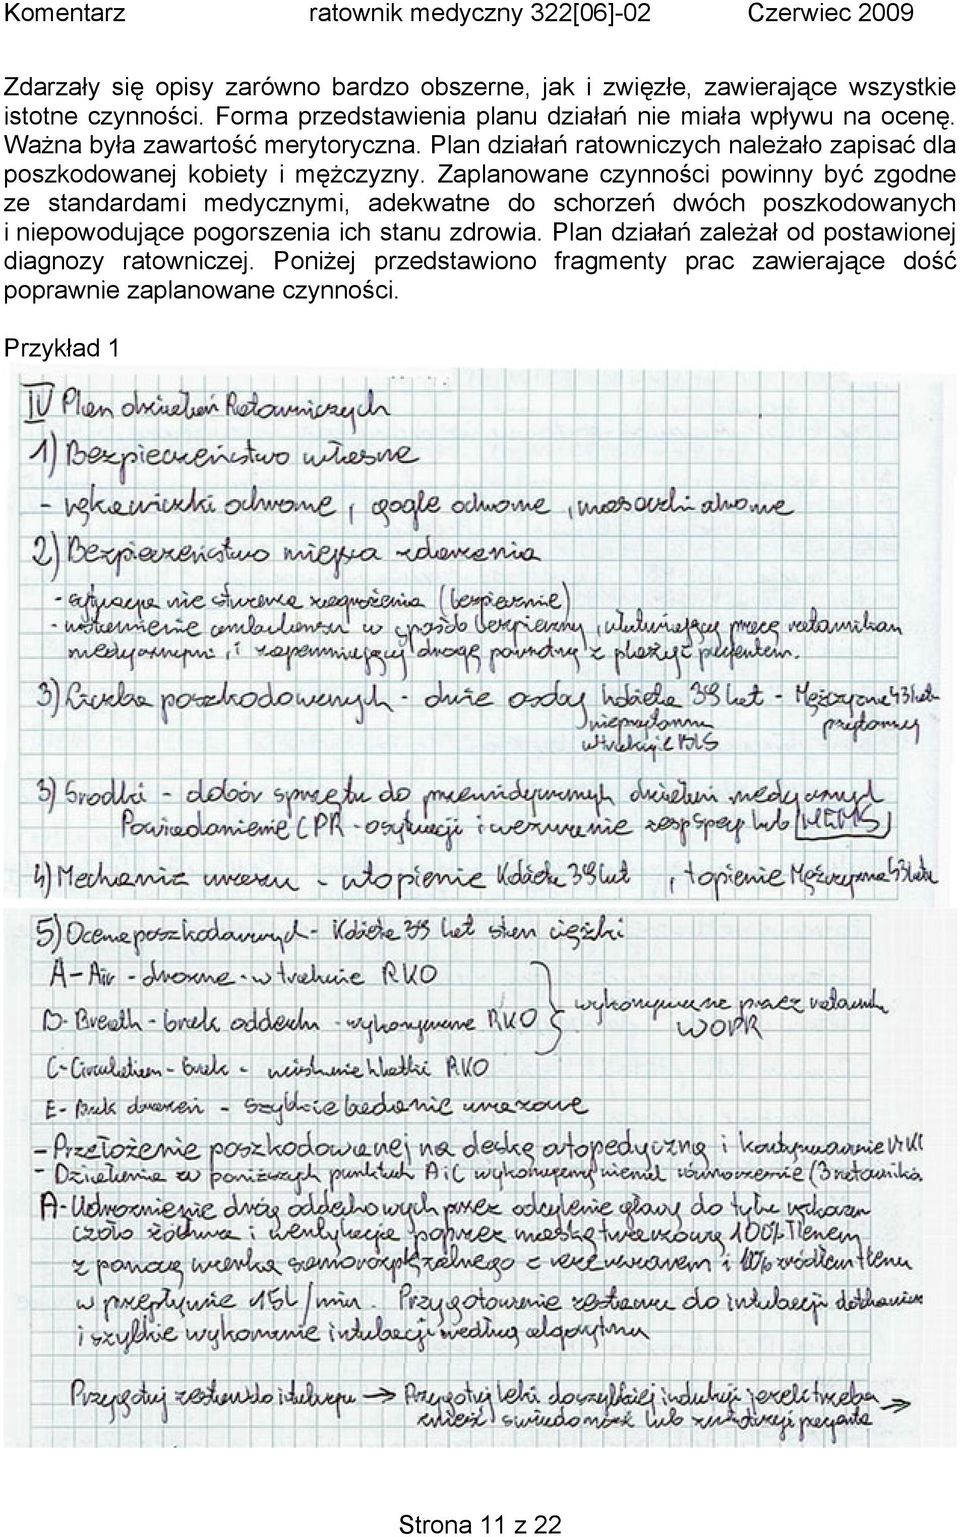 Komentarz ratownik medyczny 322[06]-02 Czerwiec 2009
Zdarzały się opisy zarówno bardzo obszerne, jak i zwięzłe, zawierające wszystkie
istotne czynności. Forma przedstawienia planu działań nie miała wpływu na ocenę.
Ważna była zawartość merytoryczna. Plan działań ratowniczych należało zapisać dla
poszkodowanej kobiety i mężczyzny. Zaplanowane czynności powinny być zgodne
ze standardami medycznymi, adekwatne do schorzeń dwóch poszkodowanych
i niepowodujące pogorszenia ich stanu zdrowia. Plan działań zależał od postawionej
diagnozy ratowniczej. Poniżej przedstawiono fragmenty prac zawierające dość
poprawnie zaplanowane czynności.
Przykład 1
IV Plan działań Ratowniczych
1) Bezpieczeństwo własne
- rękawiczki ochronne, gogle ochronne,
2) Bezpieczeństwo miejsca zdarzenia
- sytuacja nie stwarza zagrożenia (bezpiecznie)
- ustawienie ambulansu w sposób bezpieczny, ułatwiający pracę ratownikom
medycznym, i zapewniający drogę powrotną z plaży z pacjentem.
3) Liczba poszkodowanych - dwie osoby kobieta 39 lat - Mężczyzna 43 lata
nieprzytomna przytomny
w trakcie BLS
3) Środki - dobór sprzętu do przewidywanych działań medycznych
Powiadomienie CPR - o sytuacji i wezwanie zesp spec lub HEMS
4) Mechanizm urazu - utopienie Kobieta 39 lat, topienie Mężczyzna 43 lata
5) Ocena poszkodowanych - Kobieta 39 lat stan ciężki
A - Air - drożne - w trakcie RKO
B - Breath - brak oddechu - wykonywane RKO } wykonywane przez ratownik
WOPR
C - Circulation - brak - uciskanie klatki RKO
E - Brak - szybkie badanie urazowe
- Przełożenie poszkodowanej na deskę ortopedyczną i kontynuowanie
- Działania w poniższych punktach A i C wykonujemy niemal równocześnie (3 ratownika
A - Udrożnienie dróg oddechowych przez odchylenie głowy do tyłu
czoło żuchwa i wentylacja poprzez maskę twarzową 100% Tlenem
z pomocą worka samorozprężalnego z rezerwuarem i źródłem tlenu
w przepływie 15L/min. Przygotowanie zestawu do intubacji dotchawicz
i szybkie wykonanie intubacji według algorytmu
Przygotuj zestaw do intubacji → Przygotuj leki do szybkiej indukcji jeżeli trzeba →
znieść świadomość lub pacjenta
Strona 11 z 22